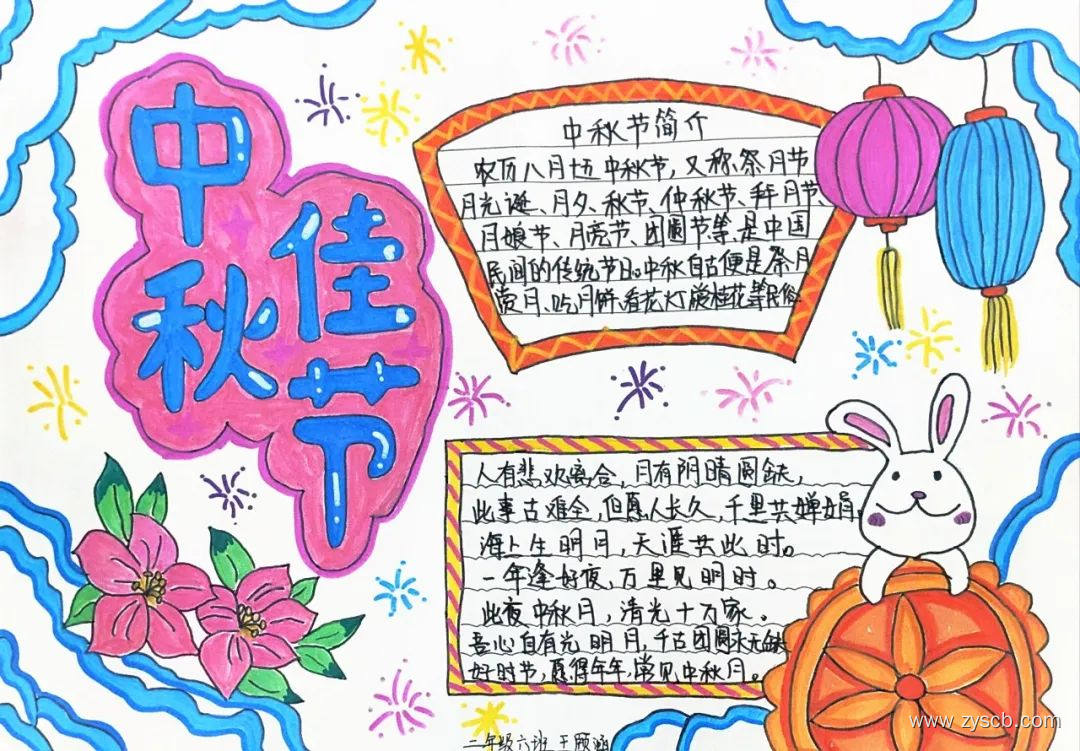 中秋佳节
中秋节简介
农历八月十五中秋节，又称祭月节
月光诞、月夕、秋节、仲秋节、拜月节、
月娘节、月亮节、团圆节等，是中国
民间的传统节日。中秋自古便是祭月
赏月、吃月饼、看花灯、赏桂花等民俗
人有悲欢离合，月有阴晴圆缺，
此事古难全，但愿人长久，千里共婵娟。
海上生明月，天涯共此时。
一年逢好夜，万里见明时。
此夜中秋月，清光十万家。
吾心自有光明月，千古团圆永无缺
好时节，愿得年年，常见中秋月。
二年级六班 王颐涵
www.zyscb.com